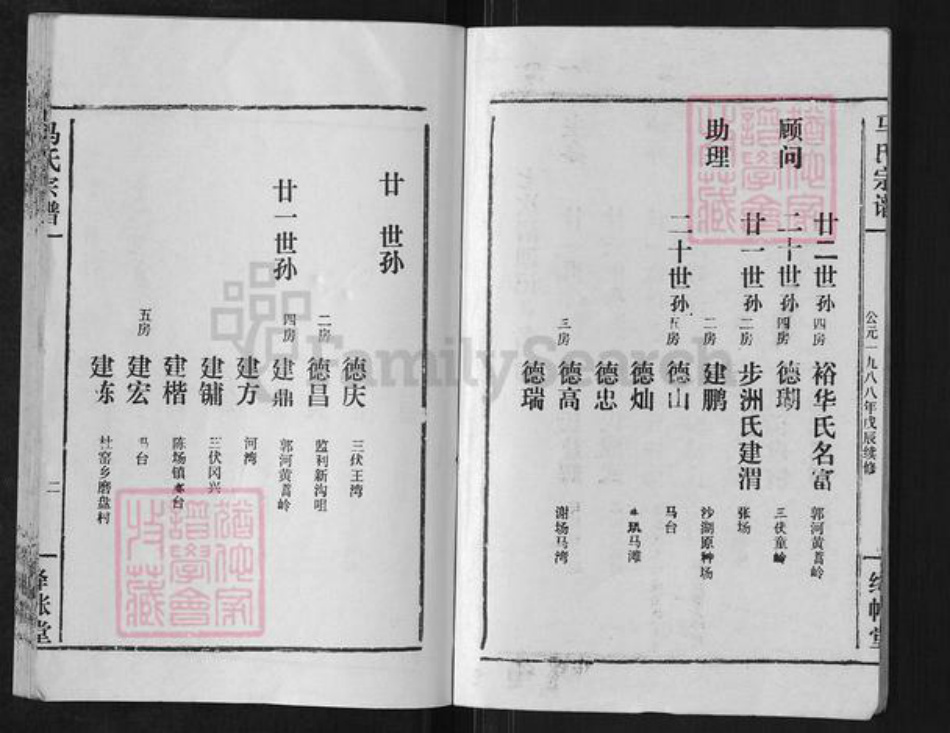 公元一九八八年戊辰续修
顾问
廿二世孙 四房 裕华氏名富 郭河黄蒿岭
二十世孙 四房 德瑚 三伏童岭
助理
廿一世孙 二房 步洲氏建渭 张场
二房 建鹏 沙湖原种场
二十世孙 五房 德山 马台
德灿 马滩
德忠
三房 德高 谢场马湾
德瑞
廿 世孙
德庆 三伏王湾
二房 德昌 监利新沟咀
廿一世孙 四房 建鼎 郭河黄蒿岭
建方 河湾
建镛 三伏冈兴
建楷 陈场镇 台
五房 建宏 马台
建东 杜窑乡磨盘村
氏宗谱
二
堂
FamilySearch